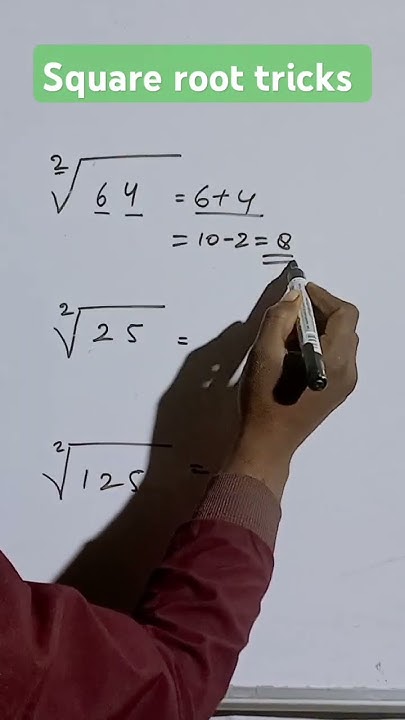 Square root tricks
²√64 = 6+4
= 10-2 = 8
²√25 =
²√125 =